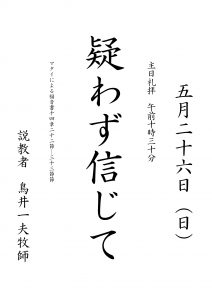 五月二十六日（日）
主日礼拝　午前十時三十分
疑わず信じて
マタイによる福音書十四章二十二節～三十三節節
説教者　鳥井一夫牧師